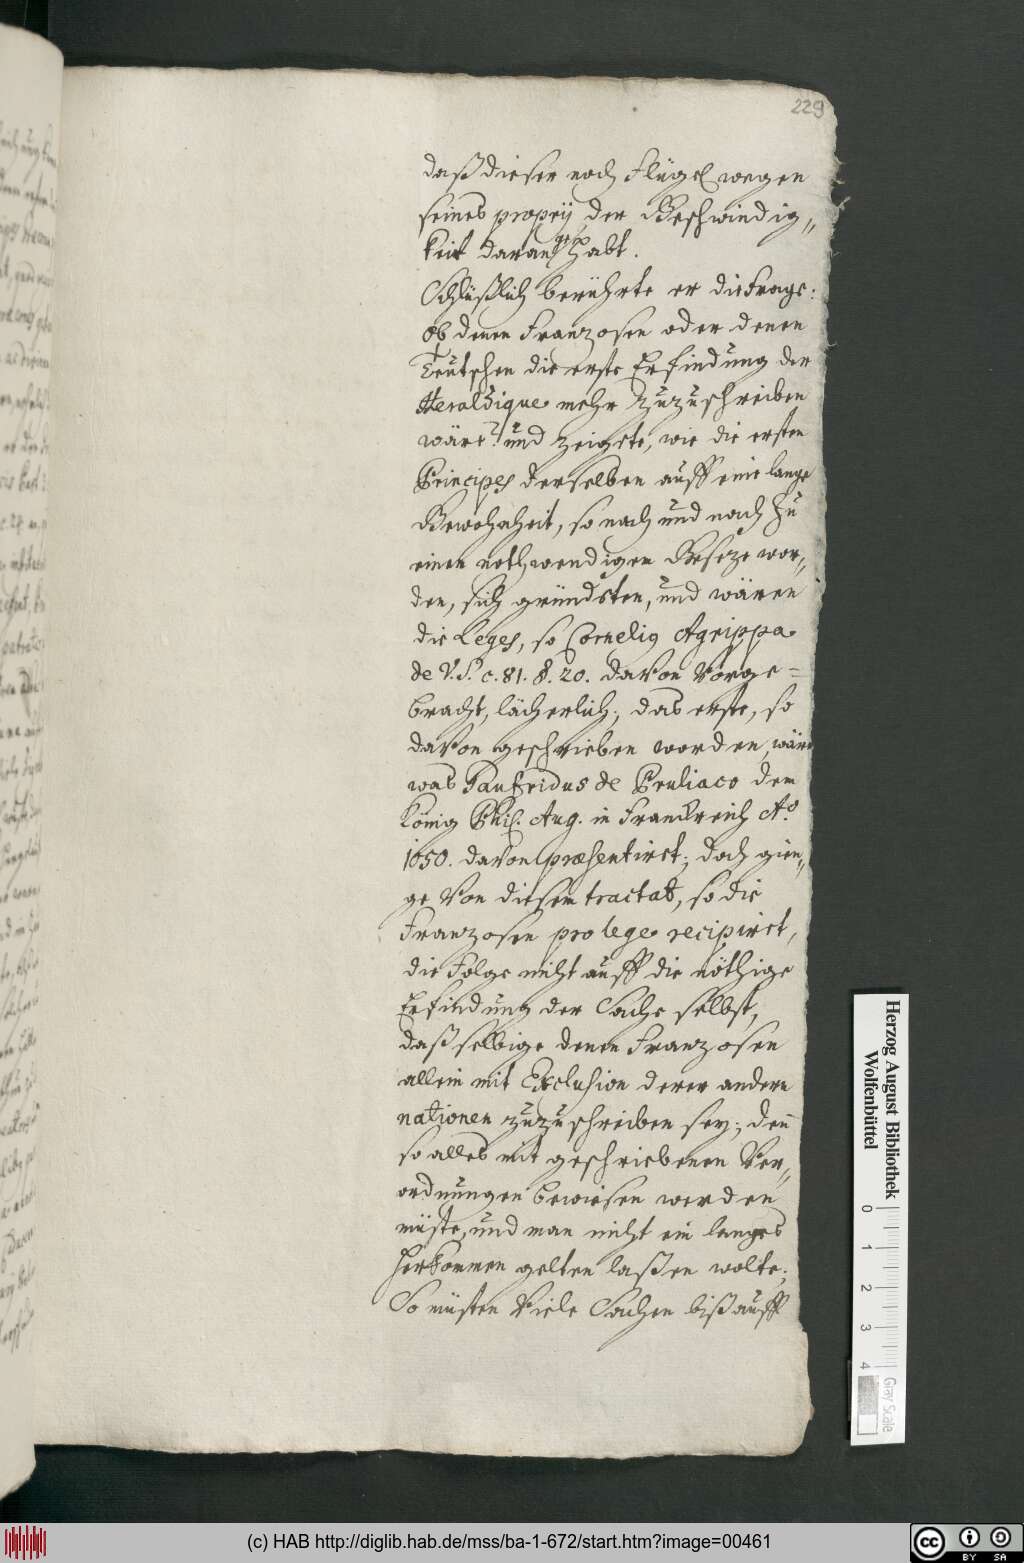 229
daß dieser noch Flügel wegen
seines proprij der Geschwindig„
keit daran gehabt.
Schlüßlich berührte er die Frage:
ob denen Franzosen oder denen
Teutschen die erste Erfindung der
Heraldique mehr zuzuschreiben
wäre? und zeigete, wie die ersten
Principes derselben auff eine lange
Gewohnheit, so nach und nach zu
einen nothwendigen Geseze wor„
den, sich gründeten, und wären
die Leges, so Cornelius Agrippa
de V.S. c. 81. §. 20. davon vorge=
bracht, lächerlich; das erste, so
davon geschrieben worden, wäre
was Gaufridus de Pruliaco dem
König Phil. Aug. in Franckreich Aº
1050. davon præsentiret; doch gien„
ge von diesem tractat, so die
Franzosen pro lege recipiret,
die Folge nicht auff die nöthige
Erfindung der Sache selbst,
daß selbige denen Franzosen
allein mit Exclusion derer andern
nationen zuzuschreiben sey; deñ
so alles mit geschriebenen Ver„
ordnungen bewiesen werden
müste, und man nicht ein langes
Herkommen gelten laßen wolte;
So müsten viele Sachen biß auff
Herzog August Bibliothek
Wolfenbüttel
0 1 2 3 4
Gray Scale
(c) HAB http://diglib.hab.de/mss/ba-1-672/start.htm?image=00461
cc BY SA